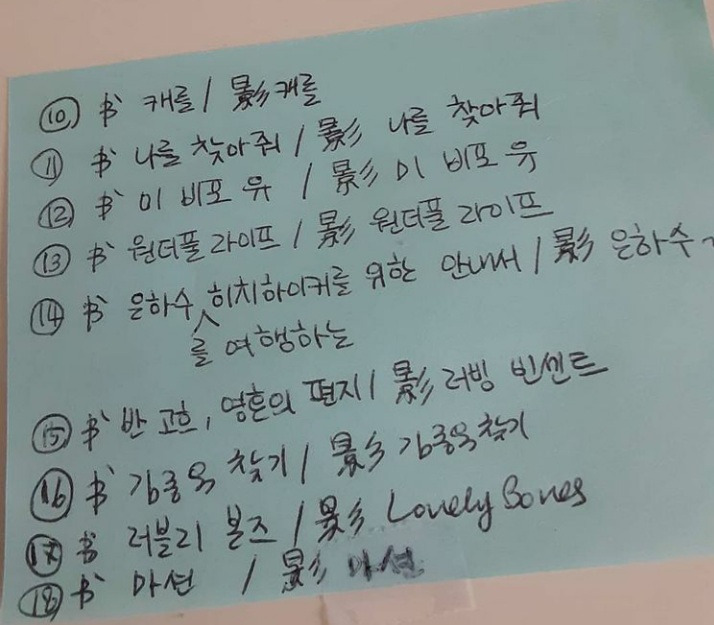 ⑩ 书 캐롤 / 影 캐롤
⑪ 书 나를 찾아줘 / 影 나를 찾아줘
⑫ 书 미 비포 유 / 影 미 비포 유
⑬ 书 원더풀 라이프 / 影 원더풀 라이프
⑭ 书 은하수 히치하이커를 위한 안내서 / 影 은하수~
를 여행하는
⑮ 书 반 고흐, 영혼의 편지 / 影 러빙 빈센트
⑯ 书 김종욱 찾기 / 影 김종욱 찾기
⑰ 书 러블리 본즈 / 影 Lovely Bones
⑱ 书 마션 / 影 마션